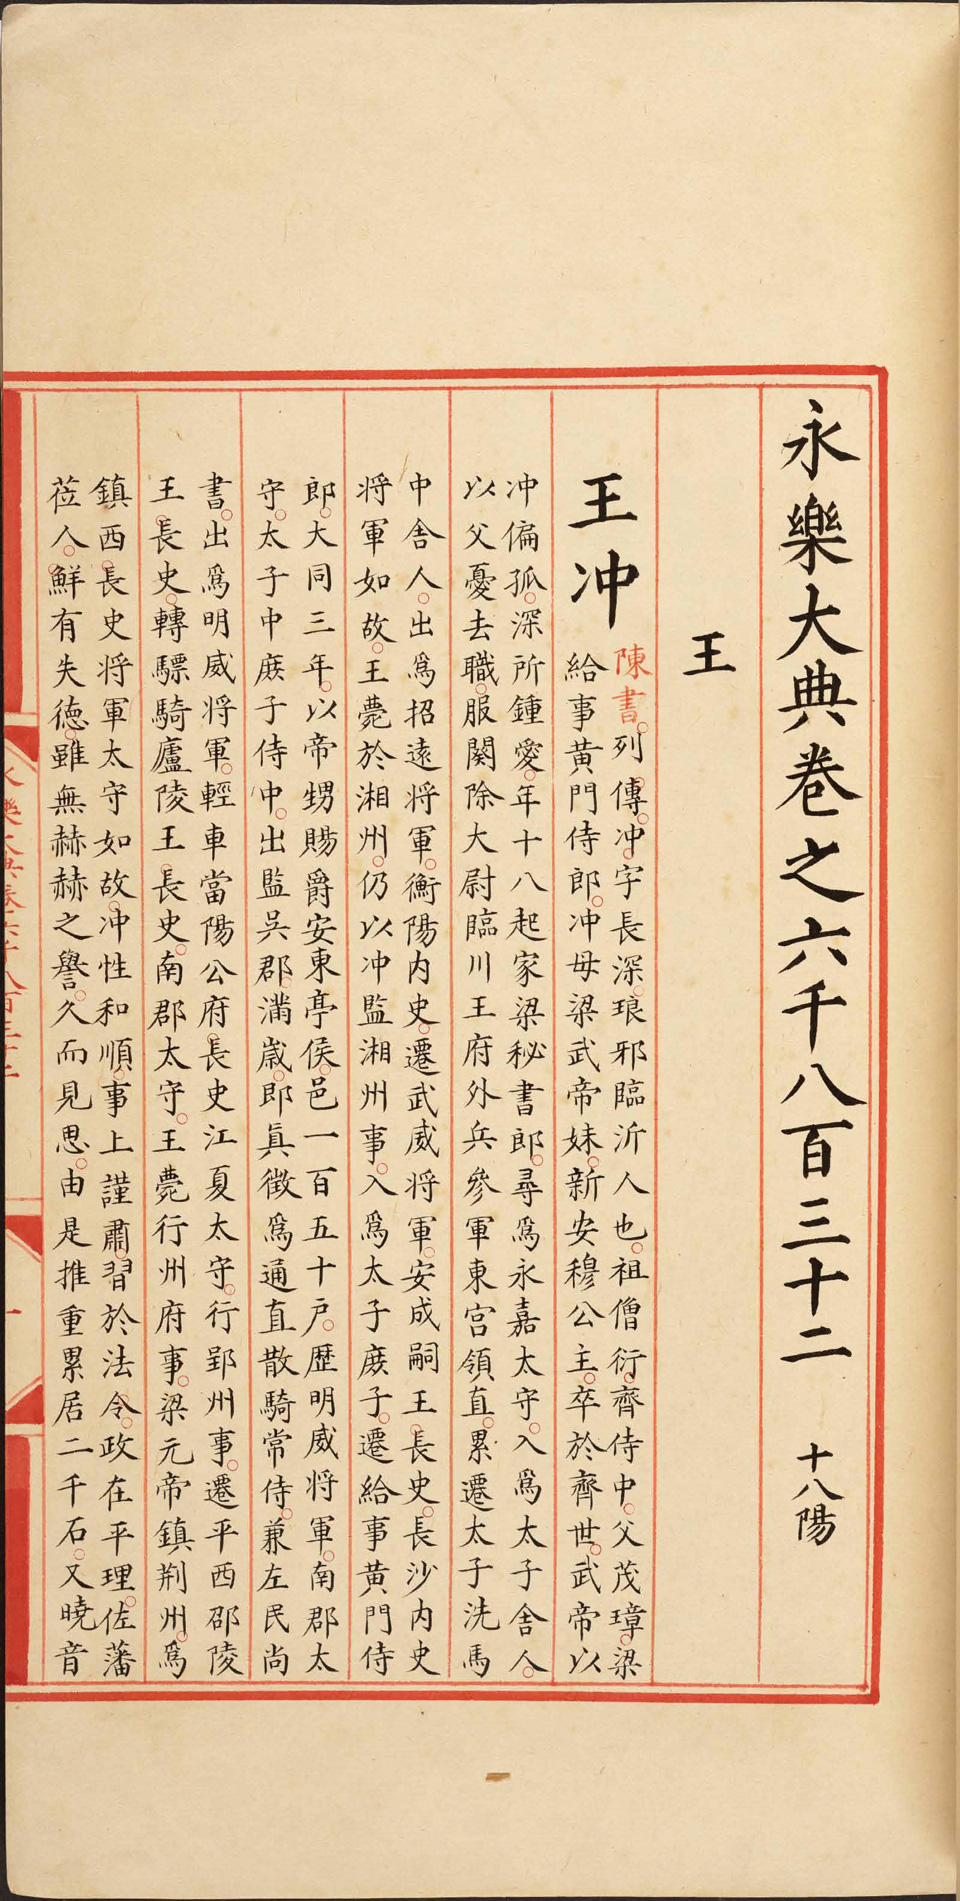 永樂大典卷之六千八百三十二　十八陽
王
王冲
陳書列傳冲字長深琅邪臨沂人也祖僧衍齊侍中父茂璋梁
給事黃門侍郎冲母梁武帝妹新安穆公主卒於齊世武帝以
冲偏孤深所鍾愛年十八起家梁秘書郎尋爲永嘉太守入爲太子舍人
以父憂去職服闋除大尉臨川王府外兵參軍東宮領直累遷太子洗馬
中舍人出爲招遠將軍衡陽內史遷武威將軍安成嗣王長史長沙內史
將軍如故王薨於湘州仍以冲監湘州事入爲太子庻子遷給事黃門侍
郎大同三年以帝甥賜爵安東亭侯邑一百五十戶歷明威將軍南郡太
守太子中庻子侍中出監吳郡滿歲郎眞徵爲通直散騎常侍兼左民尚
書出爲明威將軍輕車當陽公府長史江夏太守行郢州事遷平西邵陵
王長史轉驃騎廬陵王長史南郡太守王薨行州府事梁元帝鎮荆州爲
鎮西長史將軍太守如故冲性和順事上謹肅習於法令政在平理佐藩
莅人鮮有失德雖無赫赫之譽久而見思由是推重累居二千石又曉音